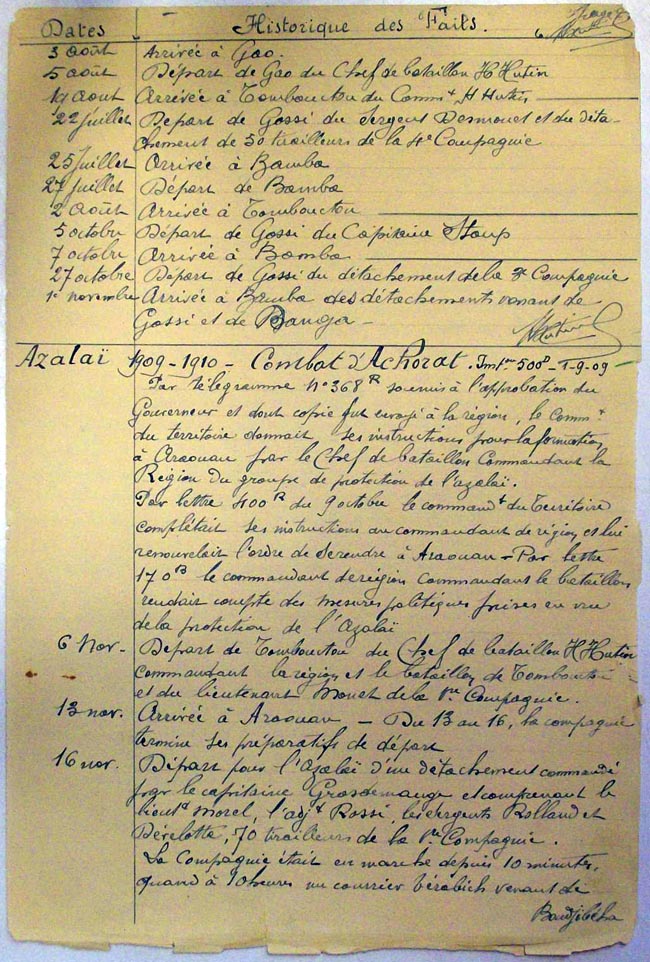 Dates Historique des Faits. 6
3 août Arrivée à Gao.
5 août Départ de Gao du Chef de bataillon H Hutin
19 aout Arrivée à Tombouctou du Comm.t H Hutin
22 Juillet Depart de Gossi du Sergent Desmouet et du déta-
chement de 50 tirailleurs de la 4e Compagnie
25 Juillet Arrivée à Bamba
27 Juillet Départ de Bamba
2 août Arrivée à Tombouctou
5 octobre Départ de Gossi du Capitaine Stoup
7 octobre Arrivée à Bamba.
27 octobre Départ de Gossi du détachement de la Compagnie
1er novembre Arrivée à Bamba des détachements venant de
Gossi et de Banga -
Hutin
Azalaï 1909-1910 - Combat d'Achorat. 500 1-9-09
Par télégramme N° 368 R soumis à l'approbation du
Gouverneur et dont copie fut envoyé à la région, le Comm.t
du territoire donnait ses instructions pour la formation
à Araouan par le Chef de bataillon Commandant la
Région du groupe de protection de l'azalaï.
Par lettre 400 R du 9 octobre le command.t du Territoire
complétait ses instructions au commandant de région, et lui
renouvelait l'ordre de se rendre à Araouan - Par lettre
170 R le commandant de région commandant le bataillon
rendait compte des mesures politiques prises en vue
de la protection de l'Azalaï
6 Nov. - Départ de Tombouctou du Chef de bataillon H Hutin
commandant la région et le bataillon de Tombouctou
et du lieutenant Monet de la 1re Compagnie.
13 nov. Arrivée à Araouan - Du 13 au 16, la compagnie
termine ses préparatifs de départ
16 nov. Départ pour l'Azalaï d'un détachement commandé
par le capitaine Grosdemange et comprenant le
lieut.t Morel, l'adj.t Rossi, les sergents Rolland et
Dérélotte, 70 tirailleurs de la 1re Compagnie.
La Compagnie était en marche depuis 10 minutes,
quand à 10 heures un courrier bérabich venant de
Boudjibéha